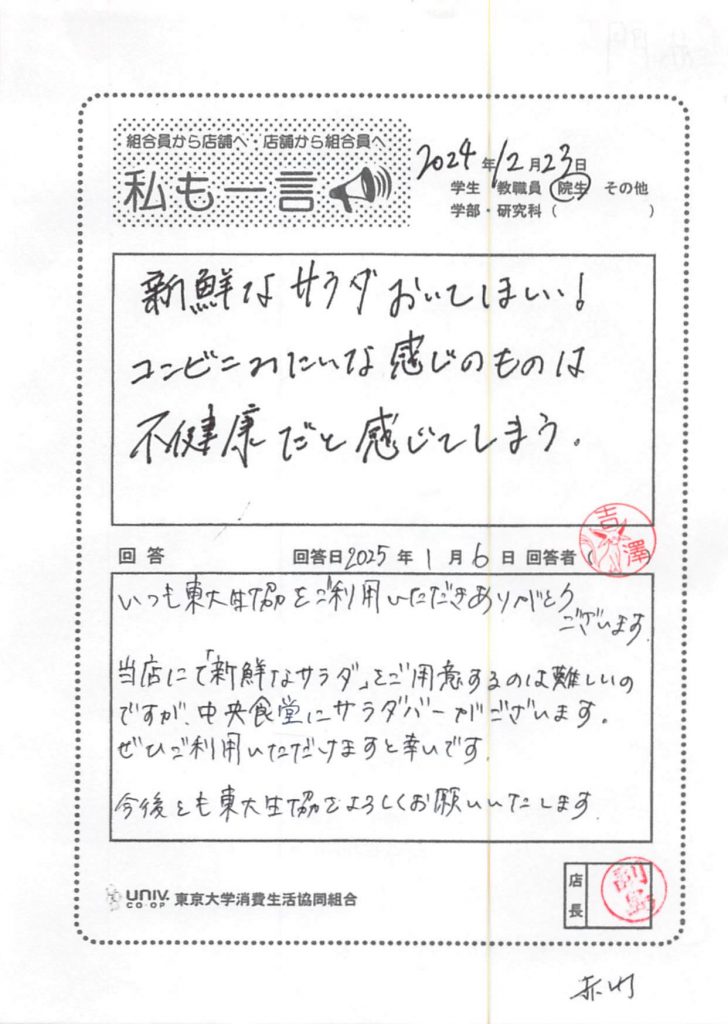 組合員から店舗へ・店舗から組合員へ
私も一言
2024年12月23日
学生 教職員 院生 その他
学部・研究科( )
新鮮なサラダおいてほしい!
コンビニみたいな感じのものは
不健康だと感じてしまう。
回答 回答日2025年1月6日 回答者(吉澤)
いつも東大生協をご利用いただきありがとう
ございます。
当店にて「新鮮なサラダ」をご用意するのは難しいの
ですが、中央食堂にサラダバーがございます。
ぜひご利用いただけますと幸いです。
今後とも東大生協をよろしくお願いいたします。
店長
UNIV. CO-OP 東京大学消費生活協同組合
赤門